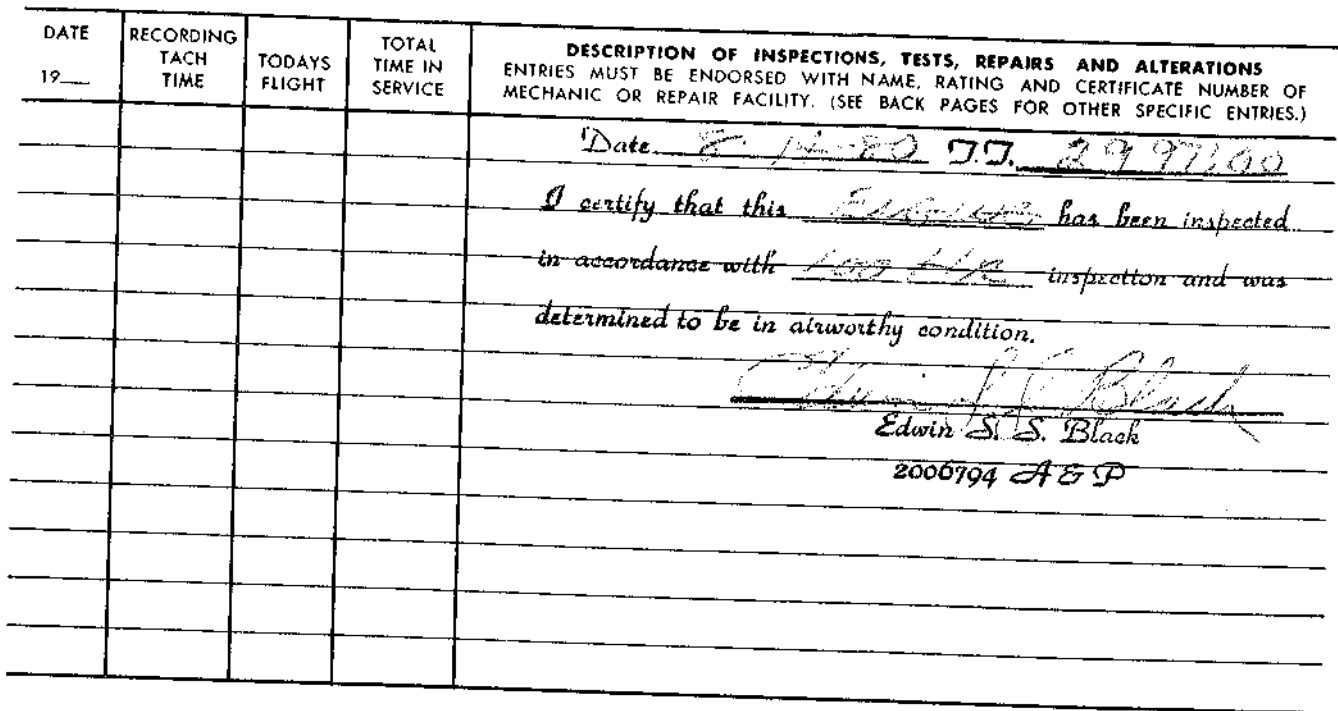 DATE
19__
RECORDING TACH TIME
TODAYS FLIGHT
TOTAL TIME IN SERVICE
DESCRIPTION OF INSPECTIONS, TESTS, REPAIRS AND ALTERATIONS
ENTRIES MUST BE ENDORSED WITH NAME, RATING AND CERTIFICATE NUMBER OF
MECHANIC OR REPAIR FACILITY. (SEE BACK PAGES FOR OTHER SPECIFIC ENTRIES.)
Date 8- -80 T.T. 2997.00
I certify that this has been inspected
in accordance with 100 HR inspection and was
determined to be in airworthy condition.
Edwin S. S. Black
Edwin S. S. Black
2006794 A & P